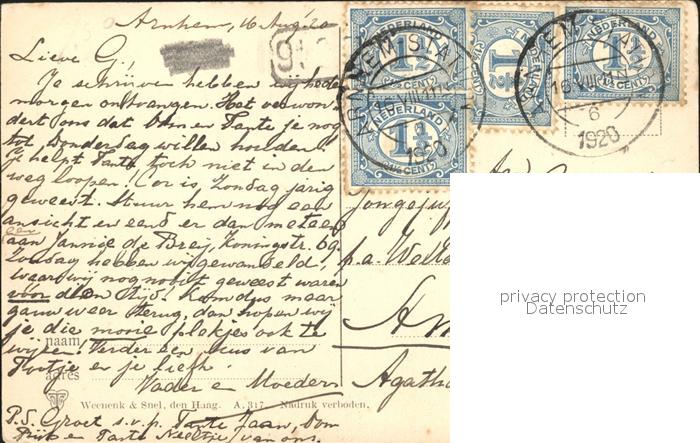 Arnhem, 16 Aug '20
Lieve G.!
Je schrijven hebben wij heden
morgen ontvangen. Het verwon
dert ons dat Oom en Tante je nog
tot Donderdag willen houden!
Je helpt Tante toch niet in den
weg loopen! Cor is Zondag jarig
geweest. Stuur hem nog een
ansicht en een er dan meteen
aan Jannie de Breij, Koningstr. 69.
Zondag hebben wij gewandeld,
waar wij nog nooit geweest waren
vóór dien tijd. Kom dus maar
gauw weer terug, dan hopen wij
je die mooie plekjes ook te
wijzen. Verder een kus van
Tootje en je liefh.
Vader en Moeder
P.S. Groet s.v.p. Tante Jaan, Oom
en Tante Neeltje van ons.
naam
adres
Weenenk & Snel, den Haag. A. 317. Nadruk verboden.
NEDERLAND
1½
CENT
NEDERLAND
1½
CENT
NEDERLAND
1½
CENT
NEDERLAND
1½
CENT
ARNHEM STAT
1920
6
1920
Jongej
p.a. We
A
Agatha
privacy protection
Datenschutz